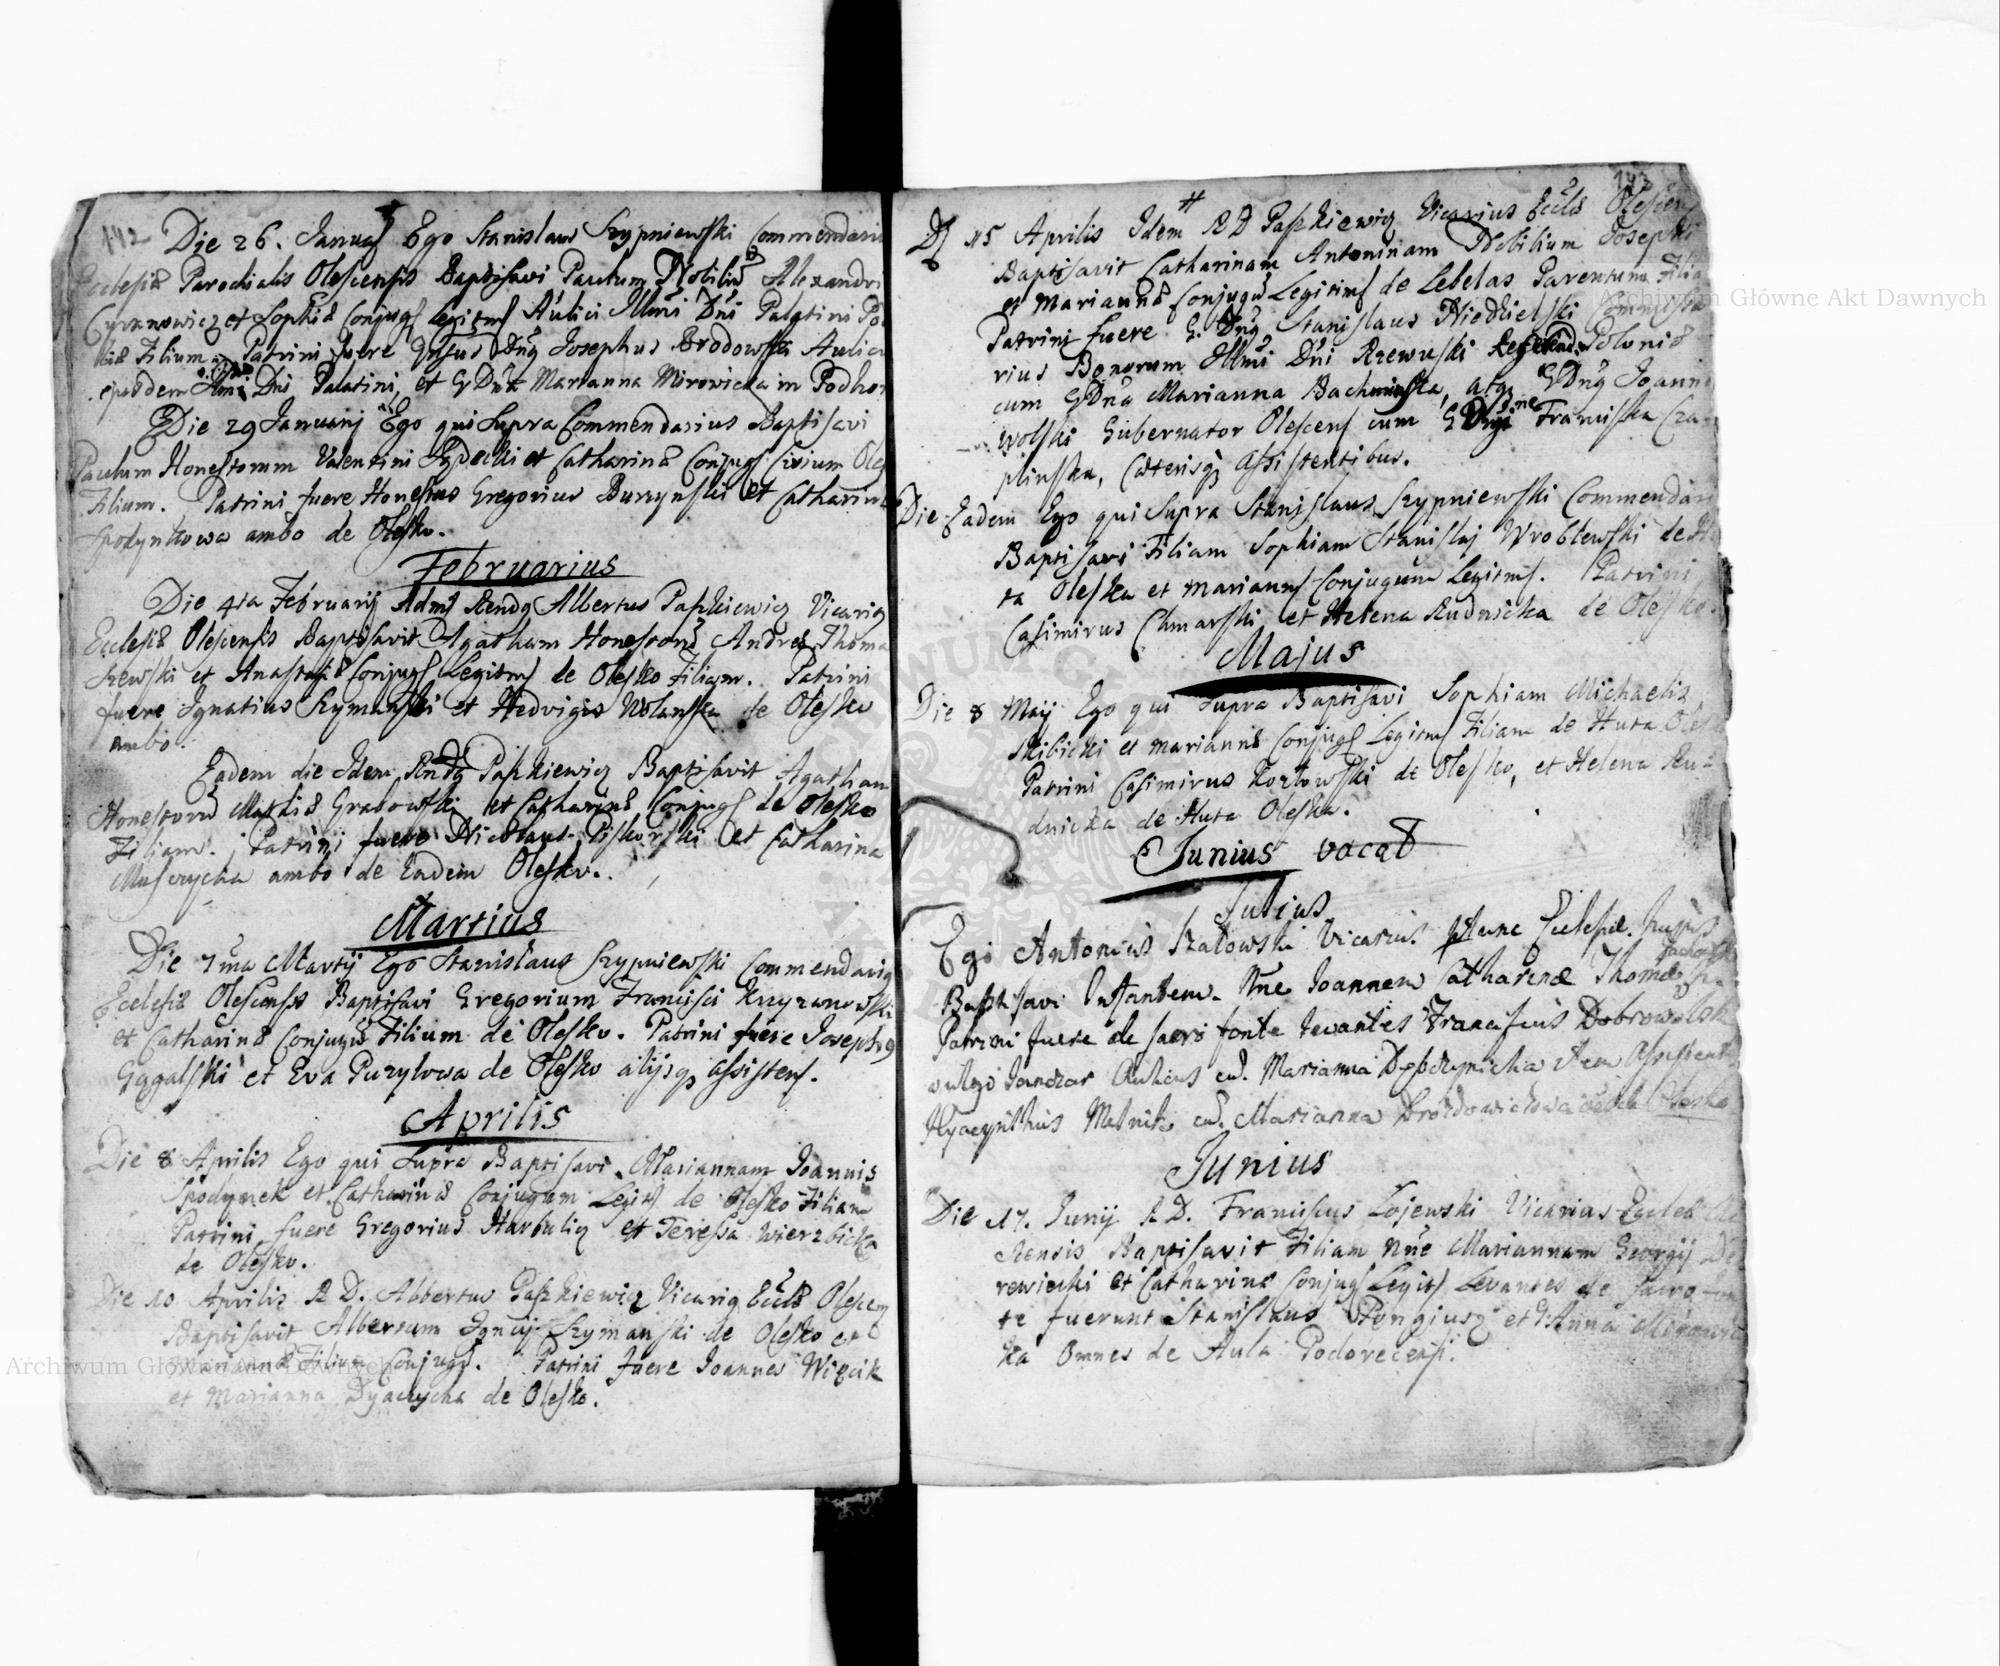 142
Die 26. Januarij Ego Stanislaus Szypniewski Commendarius
Ecclesiæ Parochialis Olescensis Baptisavi Paulum Nobiliũ Alexandri
Cyranowicz et Sophiæ Conjugũ Legitimũ Aulici Illmi Dni Palatini Po
liæ Filium. Patrini fuere Gnsus Dnũ Josephus Brodowski Aulicus
ejusdem Illmi Dni Palatini, et G Dna Marianna Mirowicka in Podhor
Die 29 Januarij Ego qui Supra Commendarius Baptisavi
Paulum Honestorum Valentini et Catharinæ Conjugũ Civium Oles
Filium. Patrini fuere Honestus Gregorius Burzynski et Catharina
Spodynkowa ambo de Olesko.
Februarius
Die 4ta Februarij Admũ Rendũ Albertus Paszkiewicz Vicariũ
Ecclesiæ Olescensis Baptisavit Agatham Honestorũ Andreæ Thoma
szewski et Anastasiæ Conjugũ Legitimũ de Olesko Filiam. Patrini
fuere Ignatius Szymanski et Hedvigis Wolanska de Olesko
ambo.
Eadem die Idem Rndũ Paszkiewicz Baptisavit Agatham
Honestorũ Mathiæ Grabowski et Catharinæ Conjugũ de Olesko
Filiam. Patrini fuere Nicolaus Piskorski et Catharina
ambo de Eadem Olesko.
Martius
Die 7ma Martij Ego Stanislaus Szypniewski Commendariũ
Ecclesiæ Olescensis Baptisavi Gregorium Francisci Krzyzanowski
et Catharinæ Conjugũ Filium de Olesko. Patrini fuere Josephus
Gągalski et Eva Puzylowa de Olesko alijsqz Assistenũ.
Aprilis
Die 8 Aprilis Ego qui Supra Baptisavi Mariannam Joannis
Spodynek et Catharinæ Conjugum Legitũ de Olesko Filiam
Patrini fuere Gregorius Harbulicz et Teressa Wierzbicka
de Olesko.
Die 10 Aprilis R D. Albertus Paszkiewicz Vicariũ Eccl̃æ Olescenũ
Baptisavit Albertum Ignatij Szymanski de Olesko et
Mariannæ Filium Conjugũ. Patrini fuere Joannes Więcik
et Marianna Dyaczycha de Olesko.
143
D 15 Aprilis Idem R D Paszkiewicz Vicarius Eccl̃æ Olescen
Baptisavit Catharinam Antoninam Nobilium Josephi
et Mariannæ Conjugũ Legitimũ de Lebelas Parentum Filia
Patrini fuere G. Dnũ Stanislaus Niedzielski Commissa
rius Bonorum Illmi Dni Rzewuski Poloniæ
cum G Dna Marianna Bachminska, atqz G Dnũ Joanne
Wolski Gubernator Olescenũ cum G Francisca Cza
plinska, Cæterisqz Assistentibus.
Die Eadem Ego qui Supra Stanislaus Szypniewski Commendari
Baptisavi Filiam Sophiam Stanislaj Wroblewski de Hu
ta Oleska et Mariannũ Conjugum Legitimũ. Patrini
Casimirus Chmarski et Helena Rudnicka de Olesko.
Majus
Die 8 Maij Ego qui Supra Baptisavi Sophiam Michaelis
Skibicki et Mariannæ Conjugũ Legitimũ Filiam de Huta Ole
Patrini Casimirus Kozlowski de Olesko, et Helena Ru
dnicka de Huta Oleska.
Junius vacat
Julius
Ego Antonius Vicarius Ecclesiæ hujus
Baptisavi Infantem Nne Joannem Catharinæ Thomæ
Patrini fuere de Sacro fonte levantes Franciscus Dobrowolsk
vulgo Janczar Aulicus cũ Marianna
Hyacynthus Melnik cũ Marianna Drozdowiczowa
Junius
Die 17. Junij R D. Franciscus Łojewski Vicarius Eccleæ
Baptisavit Filiam Nne Mariannam Georgij De
rewiecki et Catharinæ Conjugũ Legitũ Levantes de Sacro fon
te fuerunt Stanislaus Pongiusz et G Anna Mirowic
ka Omnes de Aula Podorecensi.
Archiwum Główne Akt Dawnych
Archiwum Główne Akt Dawnych